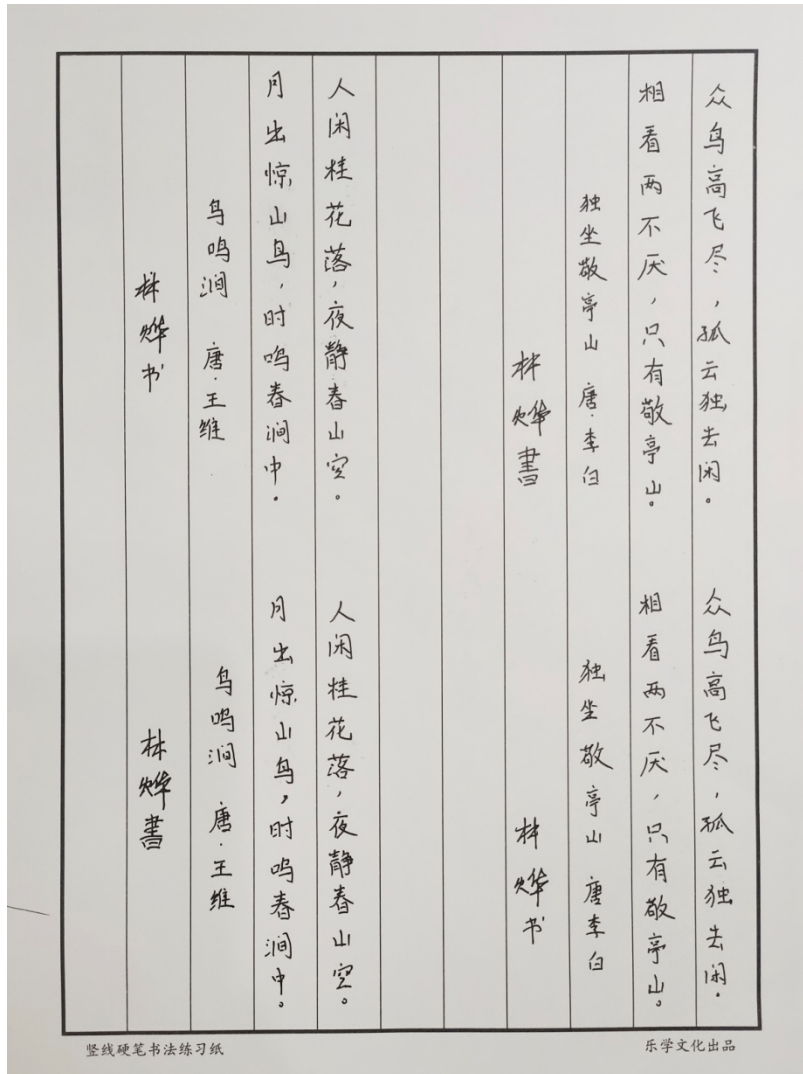 众鸟高飞尽，孤云独去闲。
相看两不厌，只有敬亭山。
独坐敬亭山 唐·李白
林烨書
众鸟高飞尽，孤云独去闲。
相看两不厌，只有敬亭山。
独坐敬亭山 唐李白
林烨书
人闲桂花落，夜静春山空。
月出惊山鸟，时鸣春涧中。
鸟鸣涧 唐·王维
林烨书
人闲桂花落，夜静春山空。
月出惊山鸟，时鸣春涧中。
鸟鸣涧 唐·王维
林烨書
竖线硬笔书法练习纸
乐学文化出品